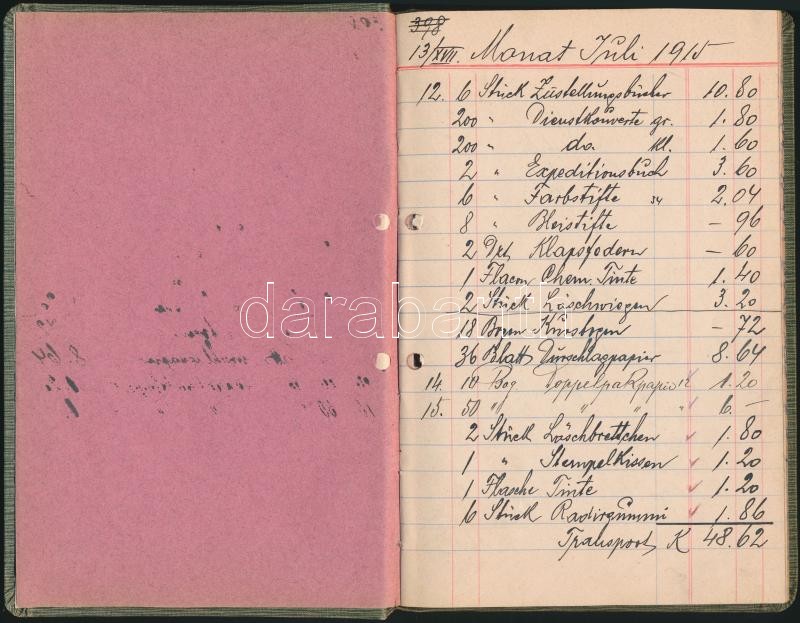 398
13/XVII. Monat Juli 1915
12. 6 Stück Zustellungsbücher 10.80
200 " Dienstkouverte gr. 1.80
200 " do. kl. 1.60
2 " Expeditionsbuch 3.60
6 " Farbstifte 34 2.04
8 " Bleistifte – 96
2 Dzt Klapsfedern – 60
1 Flacon Chem. Tinte 1.40
2 Stück Löschwiegen 3.20
18 Bogen – 72
36 Blatt Durschlagpapier 8.64
14. 10 Bog Doppelpakpapier 1.20
15. 50 " " " " 6.–
2 Stück Löschbrettchen 1.80
1 " Stempelkissen 1.20
1 Flasche Tinte 1.20
6 Stück Radirgummi 1.86
Transport K 48.62
darabanth